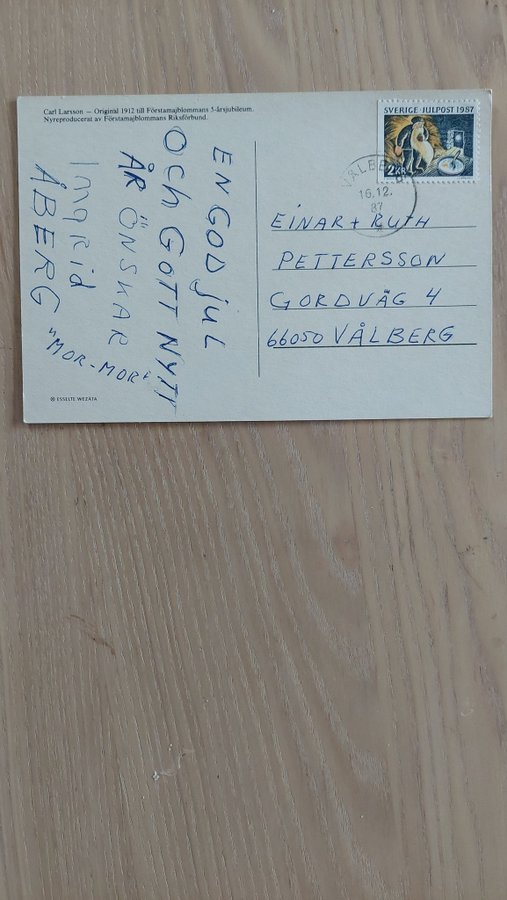 Carl Larsson – Original 1912 till Förstamajblommans 5-årsjubileum.
Nyreproducerat av Förstamajblommans Riksförbund.
EN GOD JUL
OCH GOTT NYTT
ÅR ÖNSKAR
Ingrid "MOR-MOR"
ÅBERG
© ESSELTE WEZATA
SVERIGE · JULPOST 1987
2 KR
VÅLBERG
16.12.
87
EINAR + RUTH
PETTERSSON
GORDVÄG 4
66050 VÅLBERG